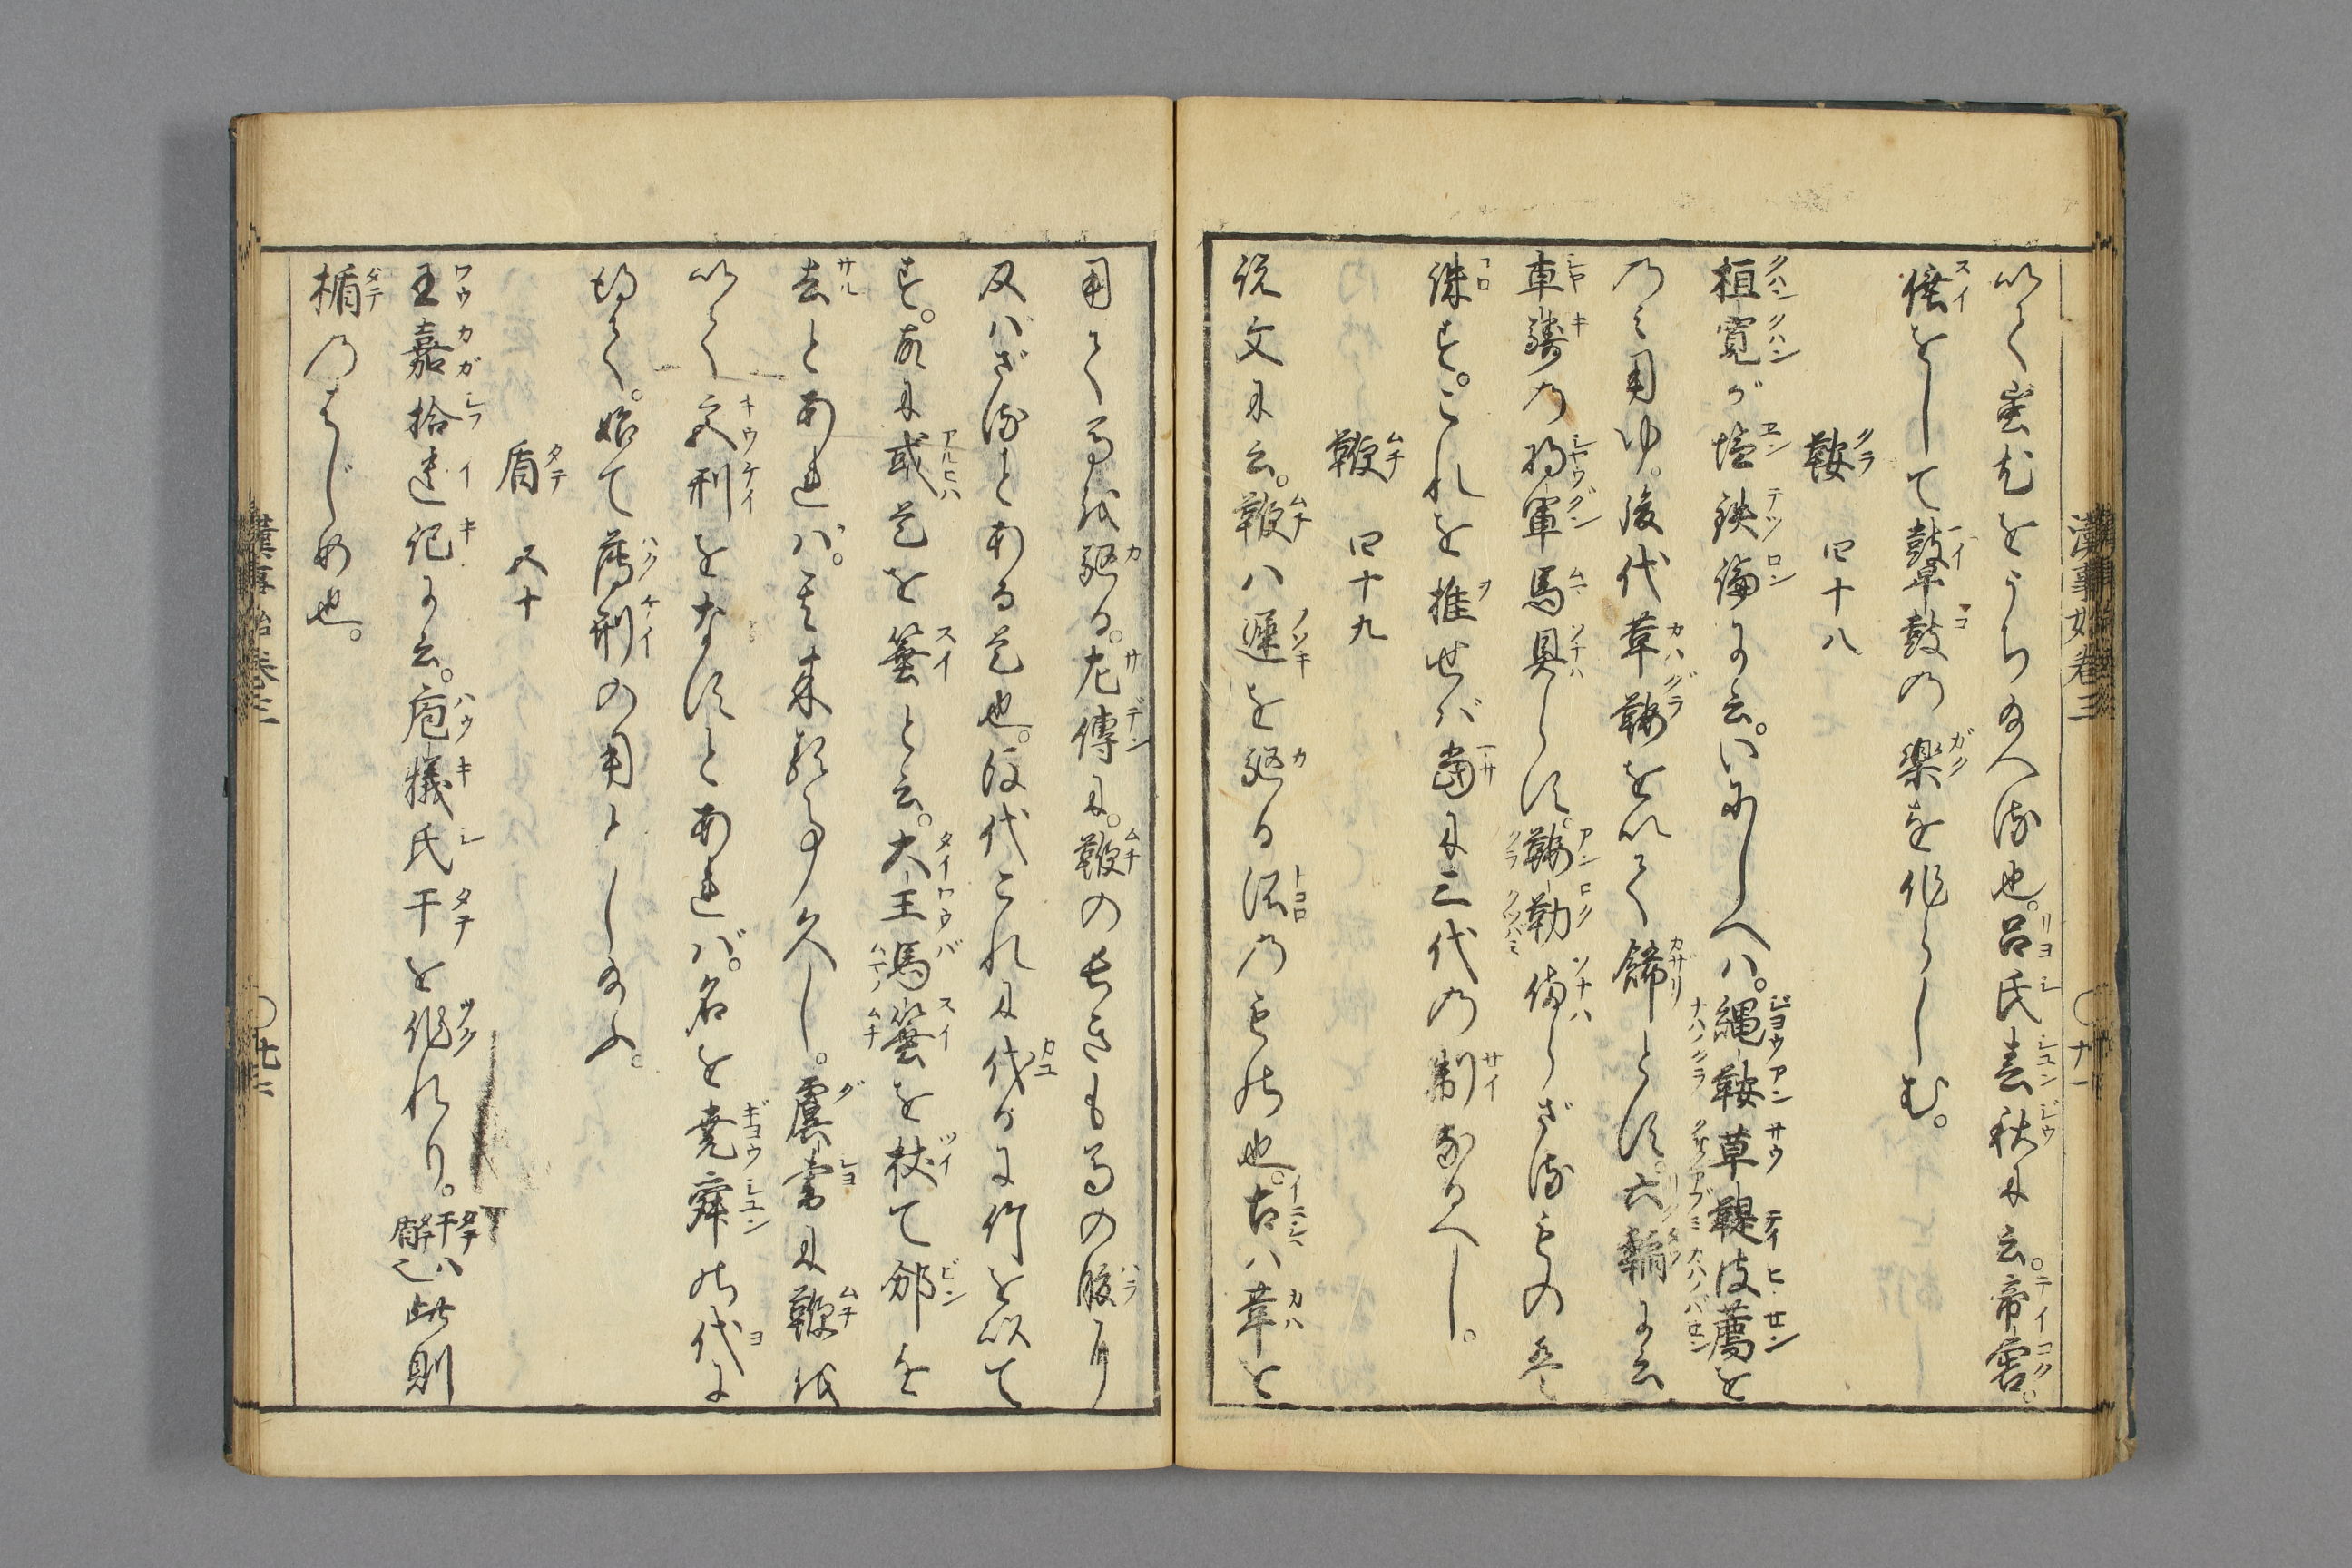 漢事始巻三　〇十一
以て蚩尤をうち給へる也。呂氏春秋に云。帝嚳。
倕をして鼙鼓の楽を作らしむ。
鞍　四十八
桓寛が塩鉄論に云。いにしへハ。縄鞍草鞮皮薦を
のミ用ゆ。後代革鞍を以て餙とす。六韜に云
車騎の将軍馬具らず。鞍勒備らざるもの is
誅す。これを推せば当に三代の制なるべし。
鞭　四十九
説文に云。鞭ハ遅を駆る所のもの也。古ハ革を
用て馬を駆る。左傳に。鞭の長きも馬の腹に
及バざるとある是也。後代これに代るに竹を以て
す。故に或是を箠と云。大王馬箠を杖て邠を
去とあれバ。其来ること久し。虞書に鞭を
以て官刑をなすとあれバ。名を堯舜の代に
得て。始て薄刑の用としるふ。
盾　五十
王嘉拾遺記に云。庖犠氏干を作れり。干ハ盾也此則
楯のはじめ也。
漢事始巻三